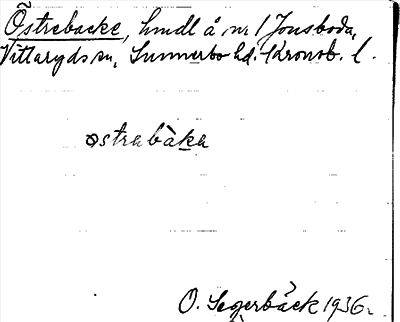 Östrebacke, hmdl å nr 1 Jonsboda,
Vittaryds sn, Sunnerbo hd. Kronob. l.
ostrabàka
O. Segerbäck 1936.